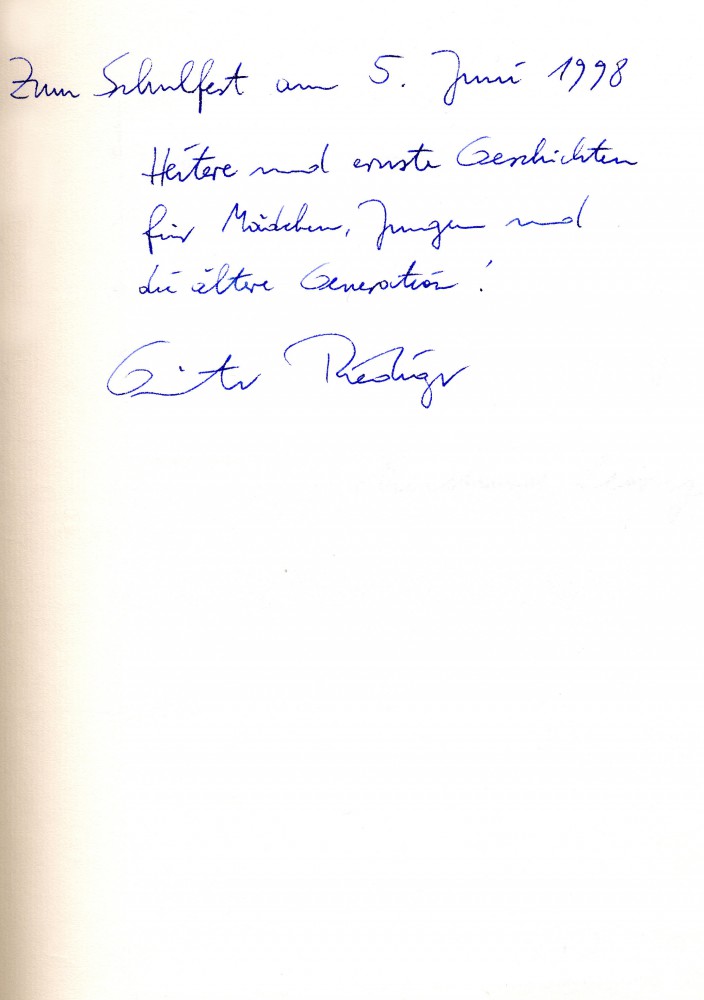 Zum Schulfest am 5. Juni 1998
Heitere und ernste Geschichten
für Mädchen, Jungen und
die ältere Generation!
Günter